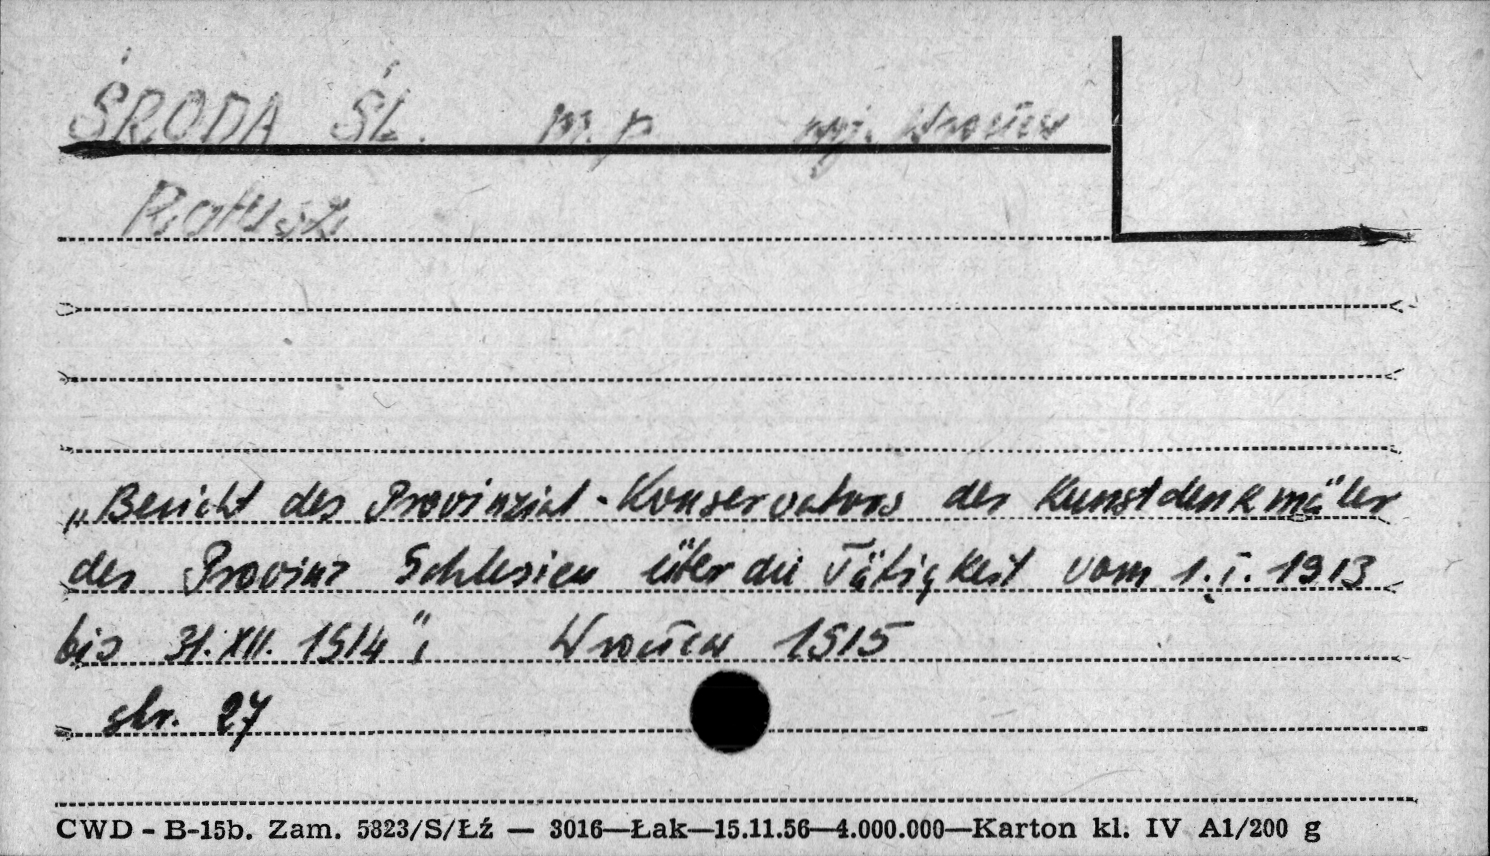 ŚRODA ŚL. m. p woj. Wrocław
Ratusz
„Bericht des Provinzial-Konservators der Kunstdenkmäler
der Provinz Schlesien über die Tätigkeit vom 1.I.1913
bis 31.XII.1914", Wrocław 1915
str. 27
CWD - B-15b. Zam. 5823/S/Łź — 3016—Łak—15.11.56—4.000.000—Karton kl. IV A1/200 g